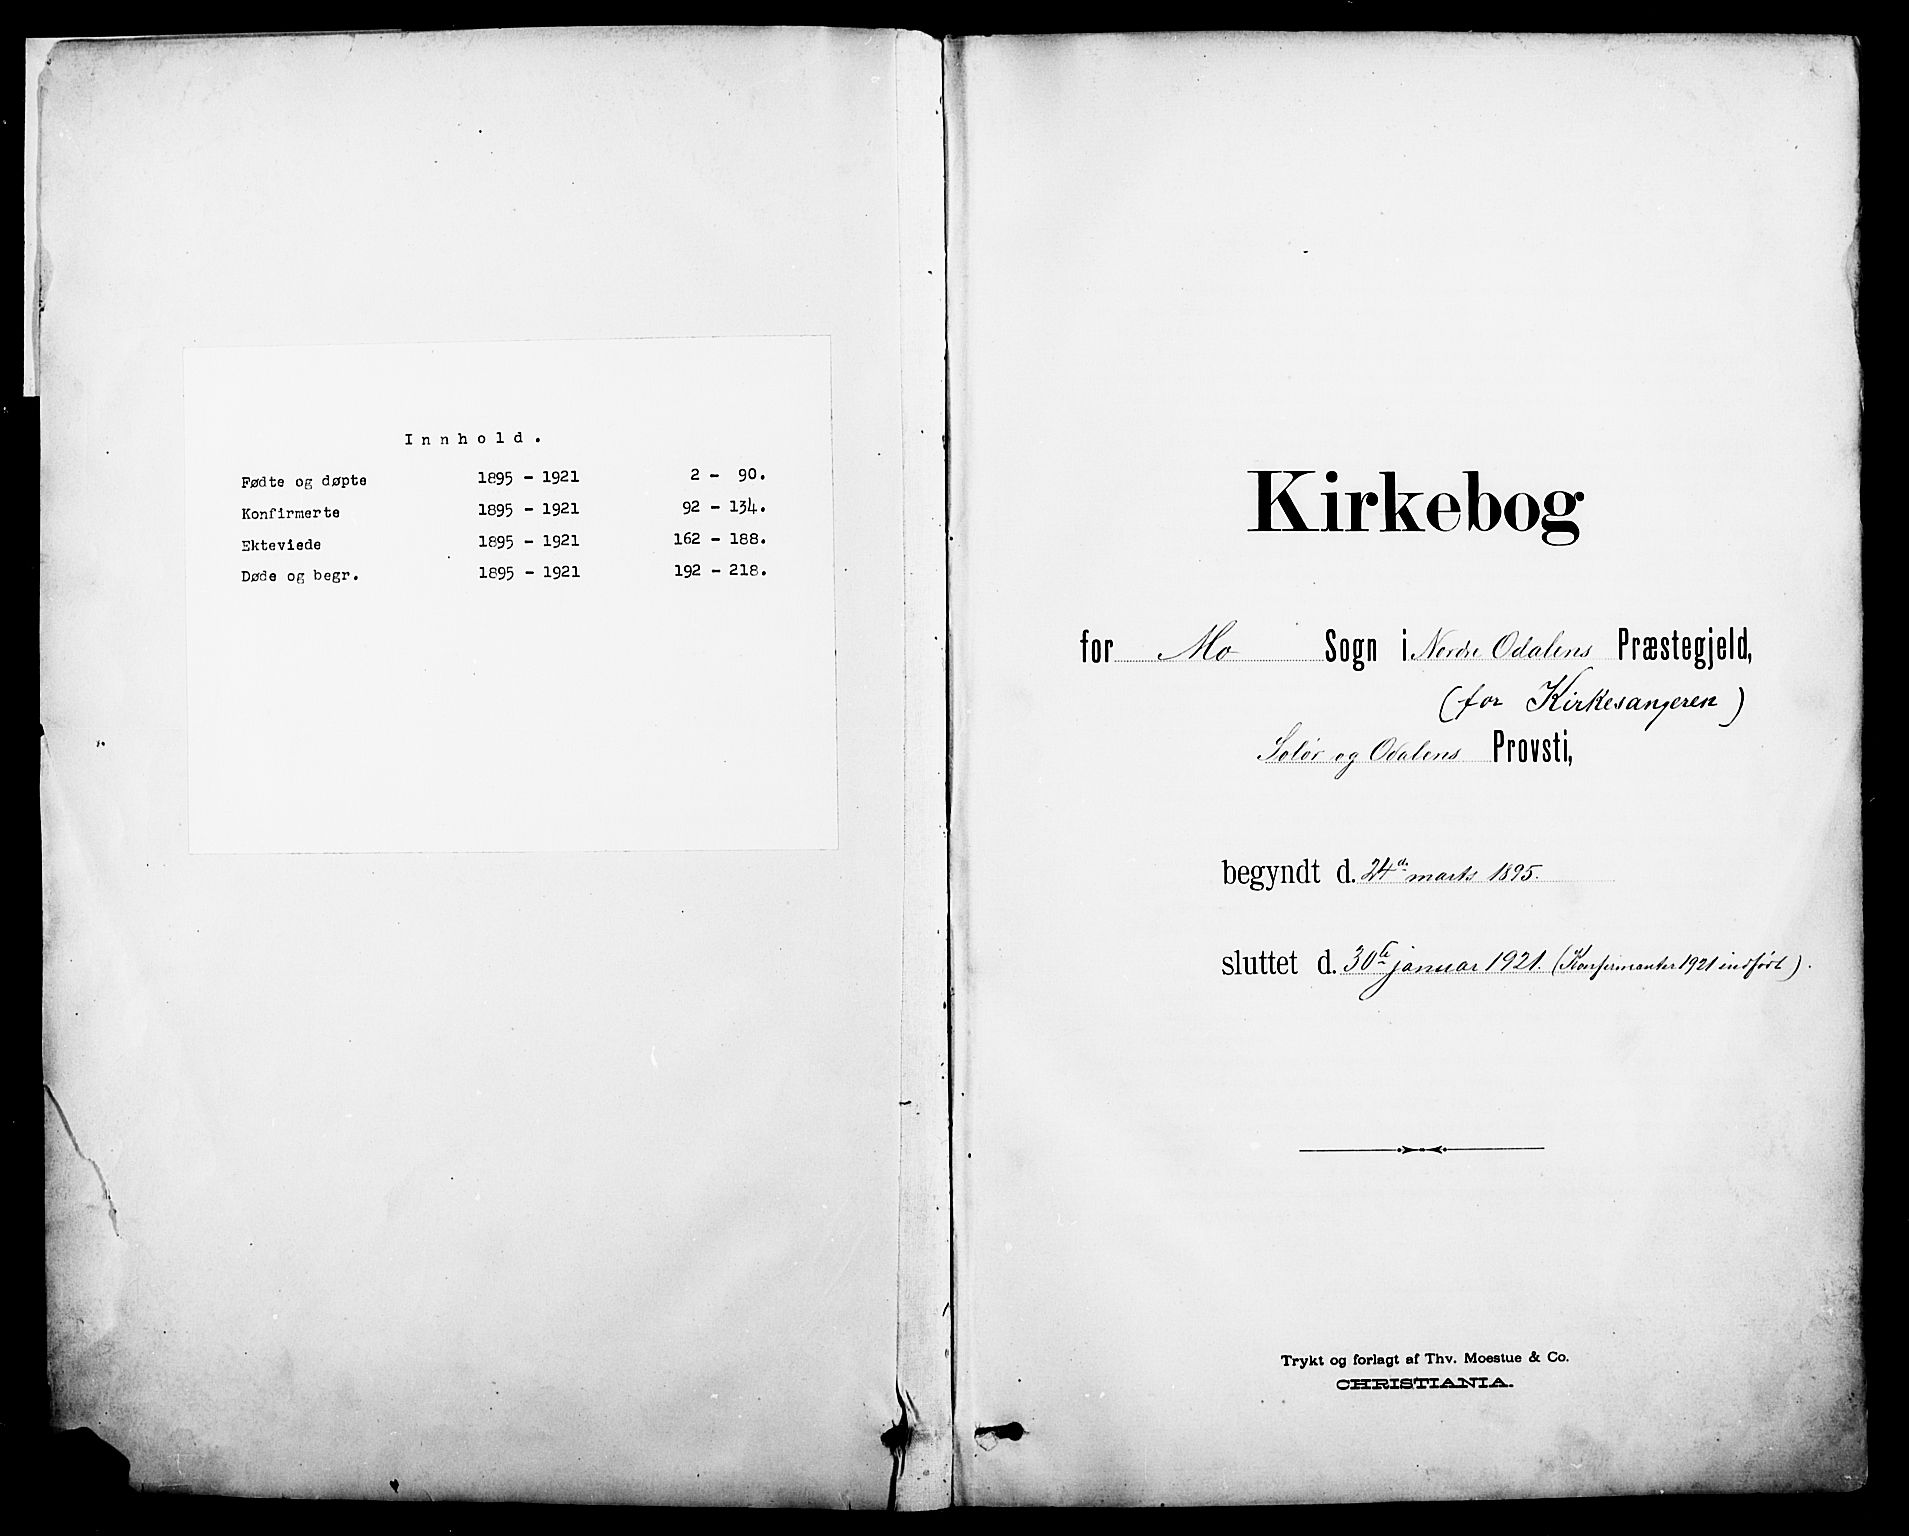 Innhold.
Fødte og døpte 1895 - 1921 2 - 90.
Konfirmerte 1895 - 1921 92 - 134.
Ekteviede 1895 - 1921 162 - 188.
Døde og begr. 1895 - 1921 192 - 218.
Kirkebog
for Mo Sogn i Nordre Odalens Præstegjeld,
(for Kirkesangeren)
Solør og Odalens Provsti,
begyndt d. 24d. marts 1895.
sluttet d. 30te januar 1921. (Konfirmanter 1921 indført).
Trykt og forlagt af Thv. Moestue & Co.
CHRISTIANIA.